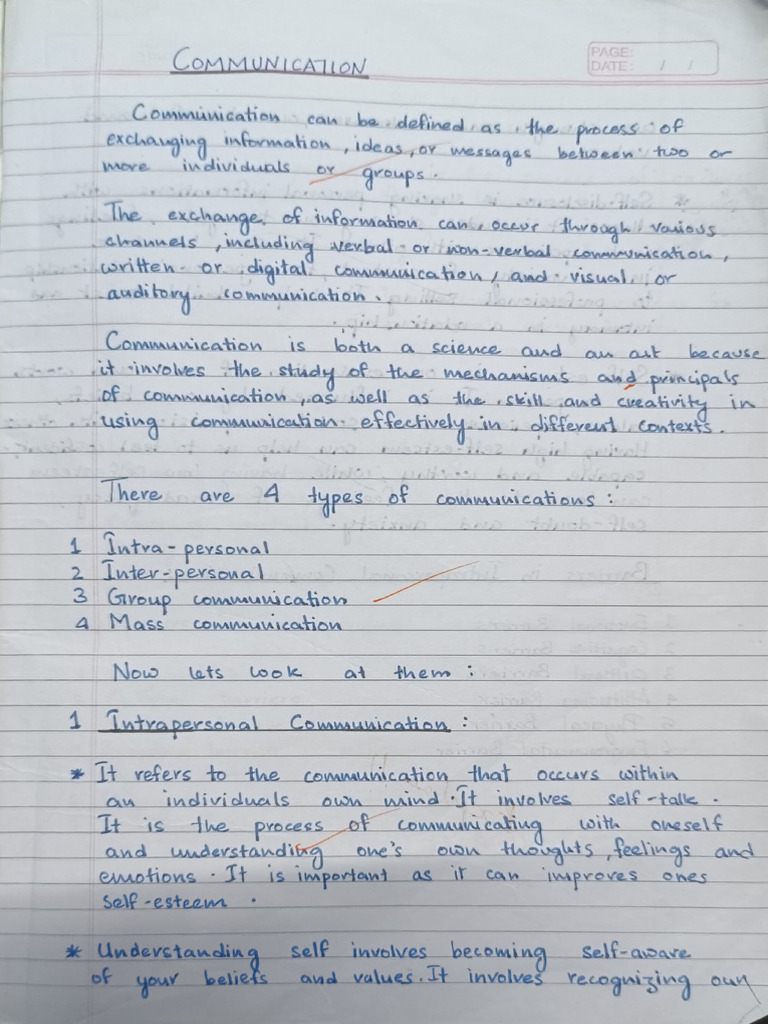 COMMUNICATION
PAGE:
DATE: / /
Communication can be defined as the process of
exchanging information, ideas, or messages between two or
more individuals or groups.
The exchange of information can occur through various
channels, including verbal or non-verbal communication,
written or digital communication, and visual or
auditory communication.
Communication is both a science and an art because
it involves the study of the mechanisms and principals
of communication, as well as the skill and creativity in
using communication effectively in different contexts.
There are 4 types of communications :
1 Intra-personal
2 Inter-personal
3 Group communication
4 Mass communication
Now lets look at them :
1 Intrapersonal Communication :
* It refers to the communication that occurs within
an individuals own mind. It involves self-talk.
It is the process of communicating with oneself
and understanding one's own thoughts, feelings and
emotions. It is important as it can improves ones
self-esteem.
* Understanding self involves becoming self-aware
of your beliefs and values. It involves recognizing our